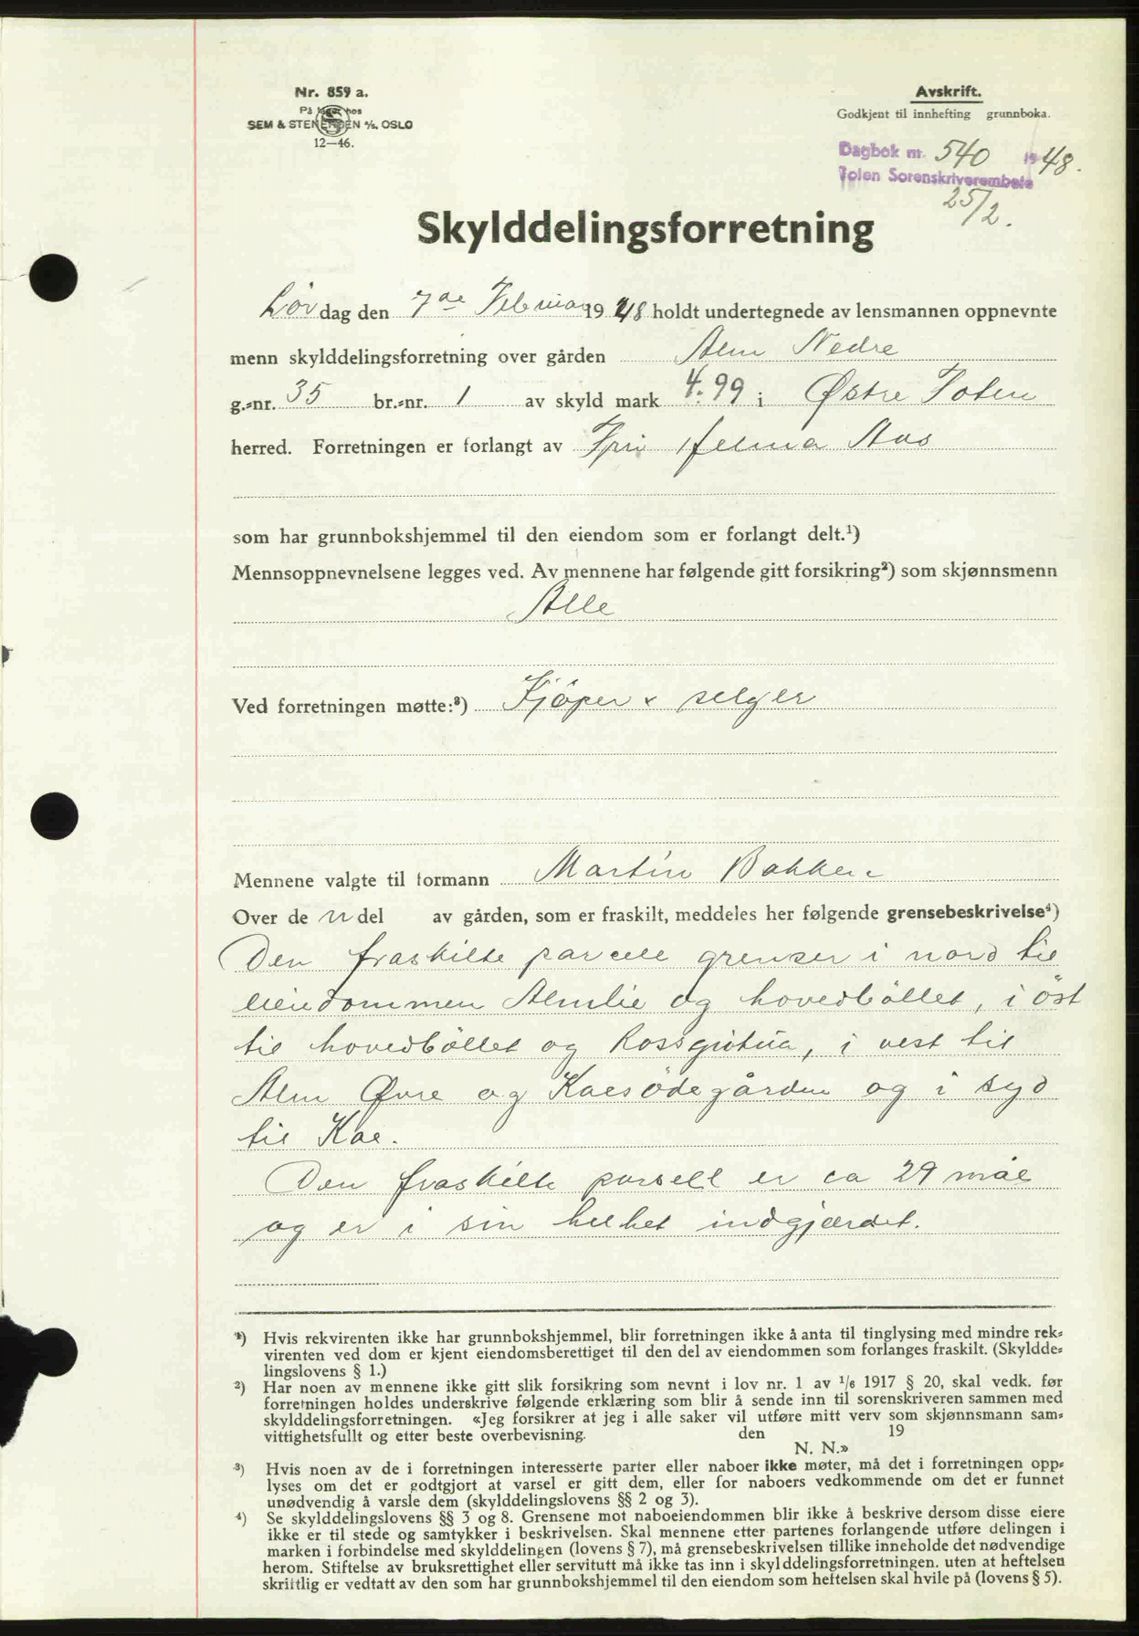 Nr. 859 a.
På lager hos
SEM & STENERSEN A/S. OSLO
12—46.
Avskrift.
Godkjent til innhefting grunnboka.
Dagbok nr. 540 1948.
Toten Sorenskriverembete
25/2.
Skylddelingsforretning
Lørdag den 7de Februar 1948 holdt undertegnede av lensmannen oppnevnte
menn skylddelingsforretning over gården Alm Nedre
g.=nr. 35 br.=nr. 1 av skyld mark 4.99 i Østre Toten
herred. Forretningen er forlangt av Helma Aas
som har grunnbokshjemmel til den eiendom som er forlangt delt.¹)
Mennsoppnevnelsene legges ved. Av mennene har følgende gitt forsikring²) som skjønnsmenn
Alle
Ved forretningen møtte:³) Kjöper & selger
Mennene valgte til formann Martin Bakken
Over de n del av gården, som er fraskilt, meddeles her følgende grensebeskrivelse⁴)
Den fraskilte parcell grenser i nord til
eiendommen Almlie og hovedbøllet, i öst
til hovedböllet og i vest til
Alm Øvre og Kaesödegården og i syd
til Kae.
Den fraskilte parsell er ca 29 mål
og er i sin helhet indgjærdet.
¹) Hvis rekvirenten ikke har grunnbokshjemmel, blir forretningen ikke å anta til tinglysing med mindre rek=
virenten ved dom er kjent eiendomsberettiget til den del av eiendommen som forlanges fraskilt. (Skyldde=
lingslovens § 1.)
²) Har noen av mennene ikke gitt slik forsikring som nevnt i lov nr. 1 av 1/6 1917 § 20, skal vedk. før
forretningen holdes underskrive følgende erklæring som blir å sende inn til sorenskriveren sammen med
skylddelingsforretningen. «Jeg forsikrer at jeg i alle saker vil utføre mitt verv som skjønnsmann sam=
vittighetsfullt og etter beste overbevisning. den 19
N. N.»
³) Hvis noen av de i forretningen interesserte parter eller naboer ikke møter, må det i forretningen opp=
lyses om det er godtgjort at varsel er gitt dem, eller for naboers vedkommende om det er funnet
unødvendig å varsle dem (skylddelingslovens §§ 2 og 3).
⁴) Se skylddelingslovens §§ 3 og 8. Grensene mot naboeiendommen blir ikke å beskrive dersom disse eiere
ikke er til stede og samtykker i beskrivelsen. Skal mennene etter partenes forlangende utføre delingen i
marken i forbindelse med skylddelingen (lovens § 7), må grensebeskrivelsen tillike inneholde det nødvendige
herom. Stiftelse av bruksrettighet eller servitutt må ikke tas inn i skylddelingsforretningen. uten at heftelsen
skriftlig er vedtatt av den som har grunnbokshjemmel til den eiendom som heftelsen skal hvile på (lovens § 5).